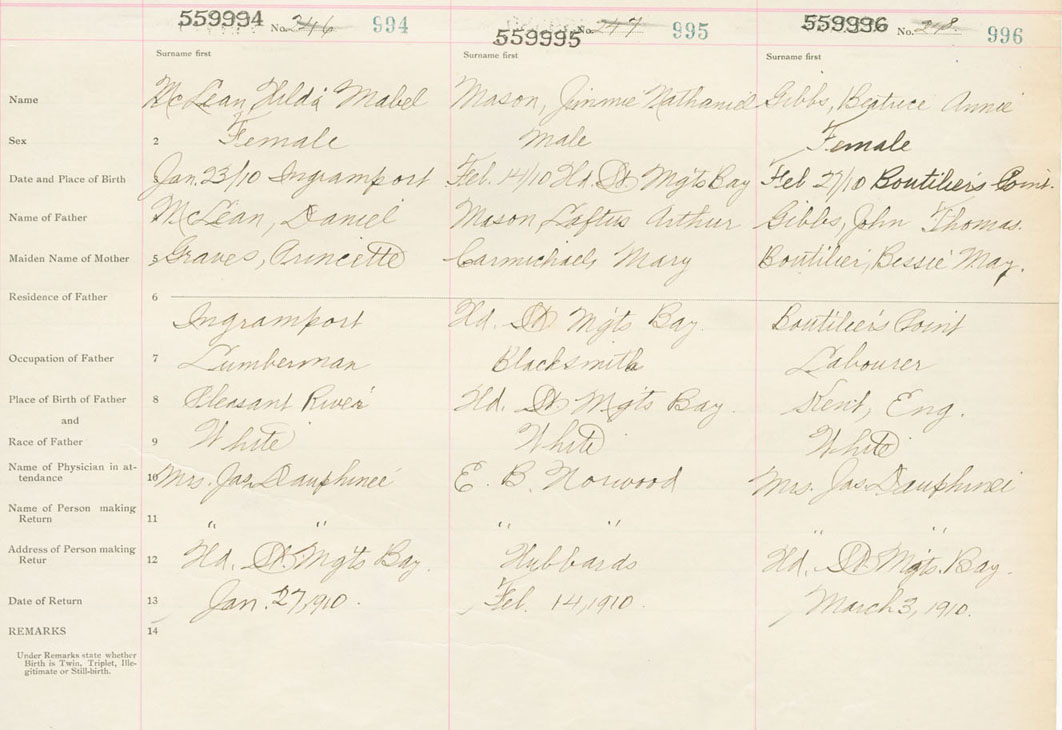 559994 No. 246 994 559995 No. 247 995 559996 No. 248 996
Surname first Surname first Surname first
Name McLean, Hilda Mabel Mason, Jimmie Nathaniel Gibbs, Beatrice Annie
Sex 2 Female Male Female
Date and Place of Birth 3 Jan. 23/10 Ingramport Feb. 14/10 Hd. St. Mgts Bay Feb 27/10 Boutilier's Point.
Name of Father McLean, Daniel Mason, Loftus Arthur Gibbs, John Thomas.
Maiden Name of Mother 5 Graves, Carmichael, Mary Boutilier, Bessie May.
Residence of Father 6
Ingramport Hd. St. Mgts Bay. Boutilier's Point
Occupation of Father 7 Lumberman Blacksmith Labourer
Place of Birth of Father 8 Pleasant River Hd. St. Mgts Bay. Kent, Eng.
and
Race of Father 9 White White White
Name of Physician in at-
tendance 10 Mrs. Jas. Dauphinee E. B. Norwood Mrs. Jas. Dauphinee
Name of Person making
Return 11 " " " " " "
Address of Person making
Retur 12 Hd. St. Mgts Bay. Hubbards Hd. St. Mgts. Bay.
Date of Return 13 Jan. 27, 1910. Feb. 14, 1910. March 3, 1910.
REMARKS 14
Under Remarks state whether
Birth is Twin, Triplet, Ille-
gitimate or Still-birth.